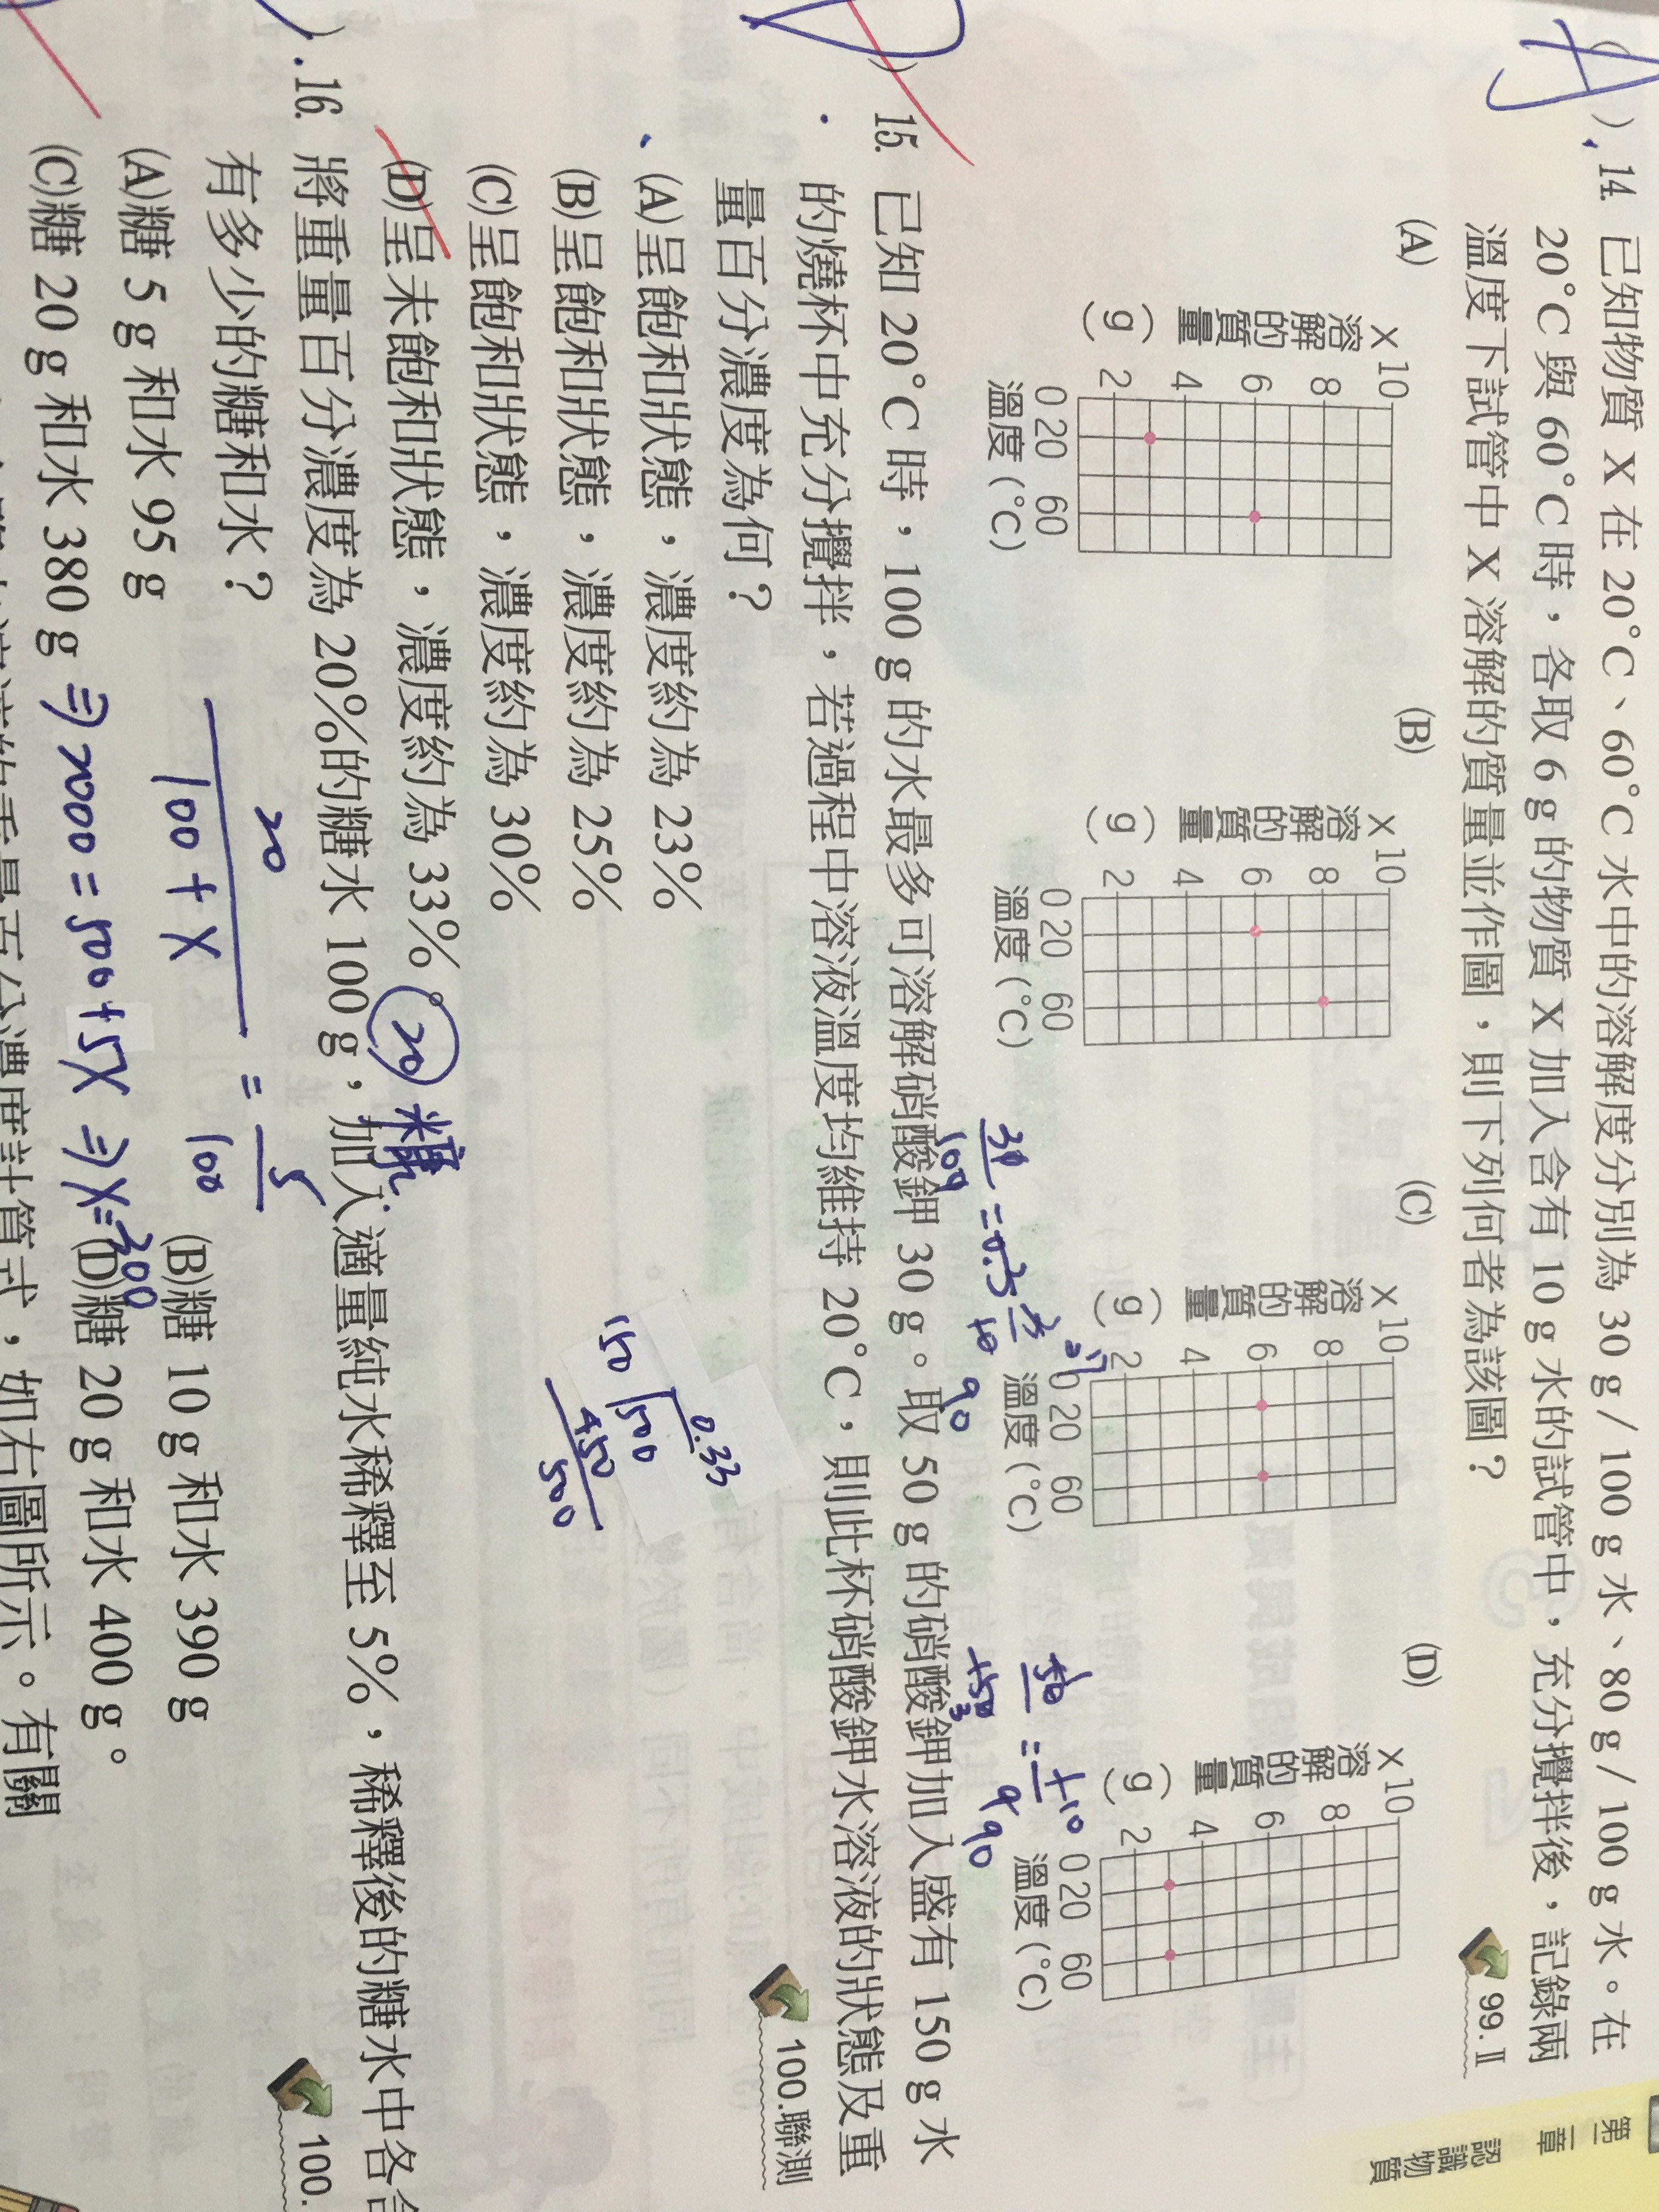 第一章 認識物質
A
). 14. 已知物質 X 在 20°C、60°C 水中的溶解度分別為 30 g / 100 g 水、80 g / 100 g 水。在
20°C 與 60°C 時，各取 6 g 的物質 X 加入含有 10 g 水的試管中，充分攪拌後，記錄兩
溫度下試管中 X 溶解的質量並作圖，則下列何者為該圖？
99. II
(A)
X溶解的質量(g)
10
8
6
4
2
0 20 60
溫度 (°C)
(B)
X溶解的質量(g)
10
8
6
4
2
0 20 60
溫度 (°C)
(C)
X溶解的質量(g)
10
8
6
4
2
0 20 60
溫度 (°C)
(D)
X溶解的質量(g)
10
8
6
4
2
0 20 60
溫度 (°C)
) 15. 已知 20°C 時，100 g 的水最多可溶解硝酸鉀 30 g。取 50 g 的硝酸鉀加入盛有 150 g 水
的燒杯中充分攪拌，若過程中溶液溫度均維持 20°C，則此杯硝酸鉀水溶液的狀態及重
量百分濃度為何？
100.聯測
(A)呈飽和狀態，濃度約為 23%
(B)呈飽和狀態，濃度約為 25%
(C)呈飽和狀態，濃度約為 30%
(D)呈未飽和狀態，濃度約為 33%。
0.33
150
500
450
500
20 糖
). 16. 將重量百分濃度為 20%的糖水 100 g，加入適量純水稀釋至 5%，稀釋後的糖水中各含
有多少的糖和水？
100.
20
100 + X
= 5
100
(A)糖 5 g 和水 95 g
(B)糖 10 g 和水 390 g
(C)糖 20 g 和水 380 g
(D)糖 20 g 和水 400 g。
⇒ 2000 = 500 + 5X ⇒ X = 300
如右圖所示。有關